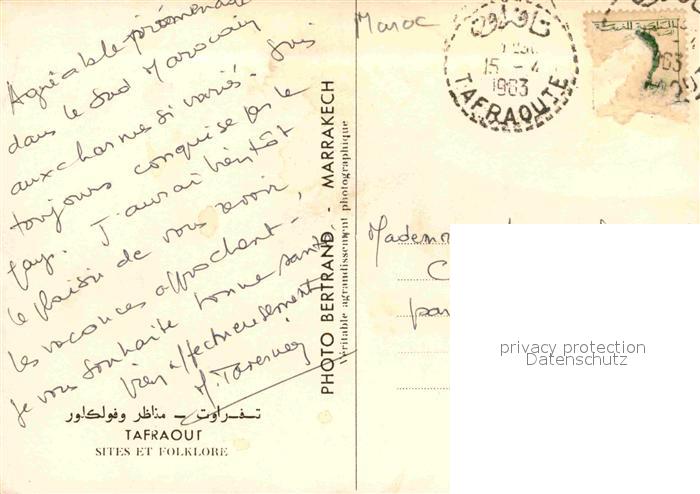 Agréable promenade
dans le Sud Marocain
aux charmes si variés. Suis
toujours conquise par le
pays. J'aurai bientôt
le plaisir de vous revoir,
les vacances approchent -
Je vous souhaite bonne santé,
bien affectueusement
تفراوت – مناظر وفولكلور
TAFRAOUT
SITES ET FOLKLORE
PHOTO BERTRAND - MARRAKECH
Véritable agrandissement photographique
Maroc
تافراوت
15 - 4
1963
TAFRAOUTE
Madem
C
par
privacy protection
Datenschutz